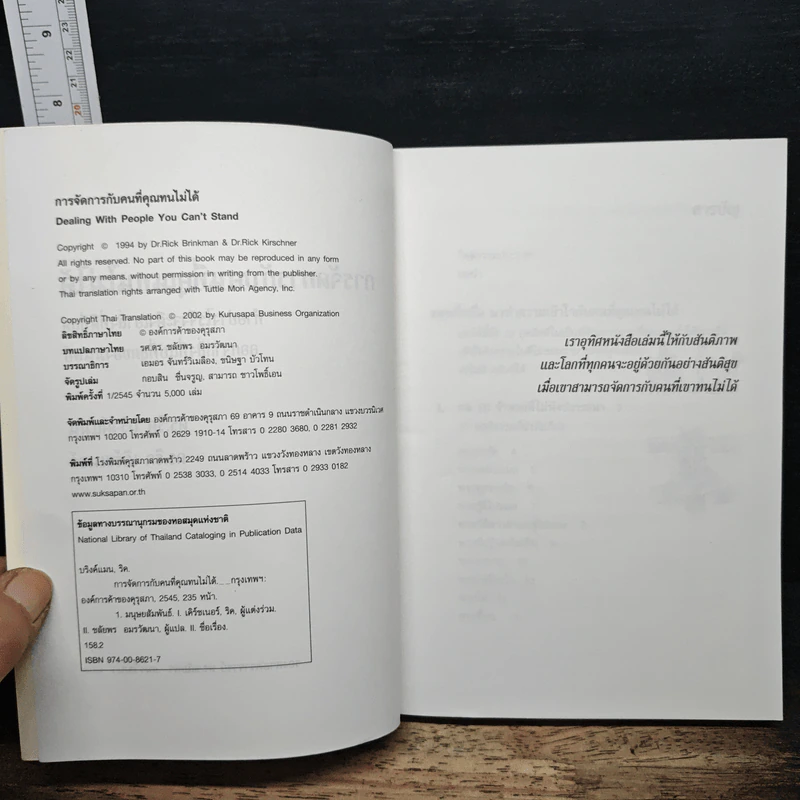 9
8
23
22
21
20
การจัดการกับคนที่คุณทนไม่ได้
Dealing With People You Can't Stand
Copyright © 1994 by Dr.Rick Brinkman & Dr.Rick Kirschner
All rights reserved. No part of this book may be reproduced in any form
or by any means, without permission in writing from the publisher.
Thai translation rights arranged with Tuttle Mori Agency, Inc.
Copyright Thai Translation © 2002 by Kurusapa Business Organization
ลิขสิทธิ์ภาษาไทย © องค์การค้าของคุรุสภา
บทแปลภาษาไทย รศ.ดร. ชลัยพร อมรวัฒนา
บรรณาธิการ เอมอร จันทร์วิเมลือง, ขนิษฐา บัวโทน
จัดรูปเล่ม กอบสิน ชื่นจรูญ, สามารถ ชาวโพธิ์เอน
พิมพ์ครั้งที่ 1/2545 จำนวน 5,000 เล่ม
จัดพิมพ์และจำหน่ายโดย องค์การค้าของคุรุสภา 69 อาคาร 9 ถนนราชดำเนินกลาง แขวงบวรนิเวศ
กรุงเทพฯ 10200 โทรศัพท์ 0 2629 1910-14 โทรสาร 0 2280 3680, 0 2281 2932
พิมพ์ที่ โรงพิมพ์คุรุสภาลาดพร้าว 2249 ถนนลาดพร้าว แขวงวังทองหลาง เขตวังทองหลาง
กรุงเทพฯ 10310 โทรศัพท์ 0 2538 3033, 0 2514 4033 โทรสาร 0 2933 0182
www.suksapan.or.th
ข้อมูลทางบรรณานุกรมของหอสมุดแห่งชาติ
National Library of Thailand Cataloging in Publication Data
บริงค์แมน, ริค.
การจัดการกับคนที่คุณทนไม่ได้.__กรุงเทพฯ:
องค์การค้าของคุรุสภา, 2545, 235 หน้า.
1. มนุษยสัมพันธ์. I. เคิร์ชเนอร์, ริค, ผู้แต่งร่วม.
II. ชลัยพร อมรวัฒนา, ผู้แปล. II. ชื่อเรื่อง.
158.2
ISBN 974-00-8621-7
เราอุทิศหนังสือเล่มนี้ให้กับสันติภาพ
และโลกที่ทุกคนจะอยู่ด้วยกันอย่างสันติสุข
เมื่อเขาสามารถจัดการกับคนที่เขาทนไม่ได้